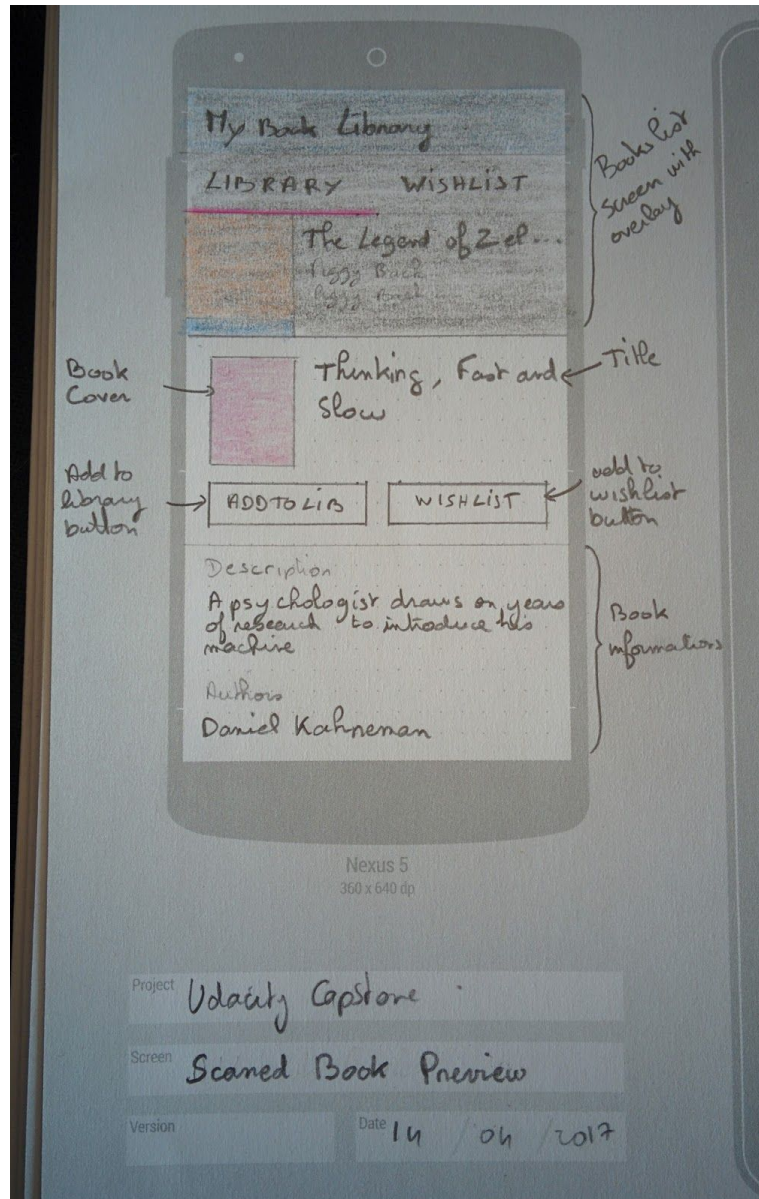 My Book Library
LIBRARY WISHLIST
The Legend of Zel...
Piggy Back
Piggy Back
Books list
screen with
overlay
Book
Cover
Thinking, Fast and
Slow
Title
Add to
library
button
ADD TO LIB
WISHLIST
add to
wishlist
button
Description
A psychologist draws on years
of research to introduce his
machine
Authors
Daniel Kahneman
Book
informations
Nexus 5
360 x 640 dp
Project Udacity Capstone
Screen Scaned Book Preview
Version
Date 14 / 04 / 2017